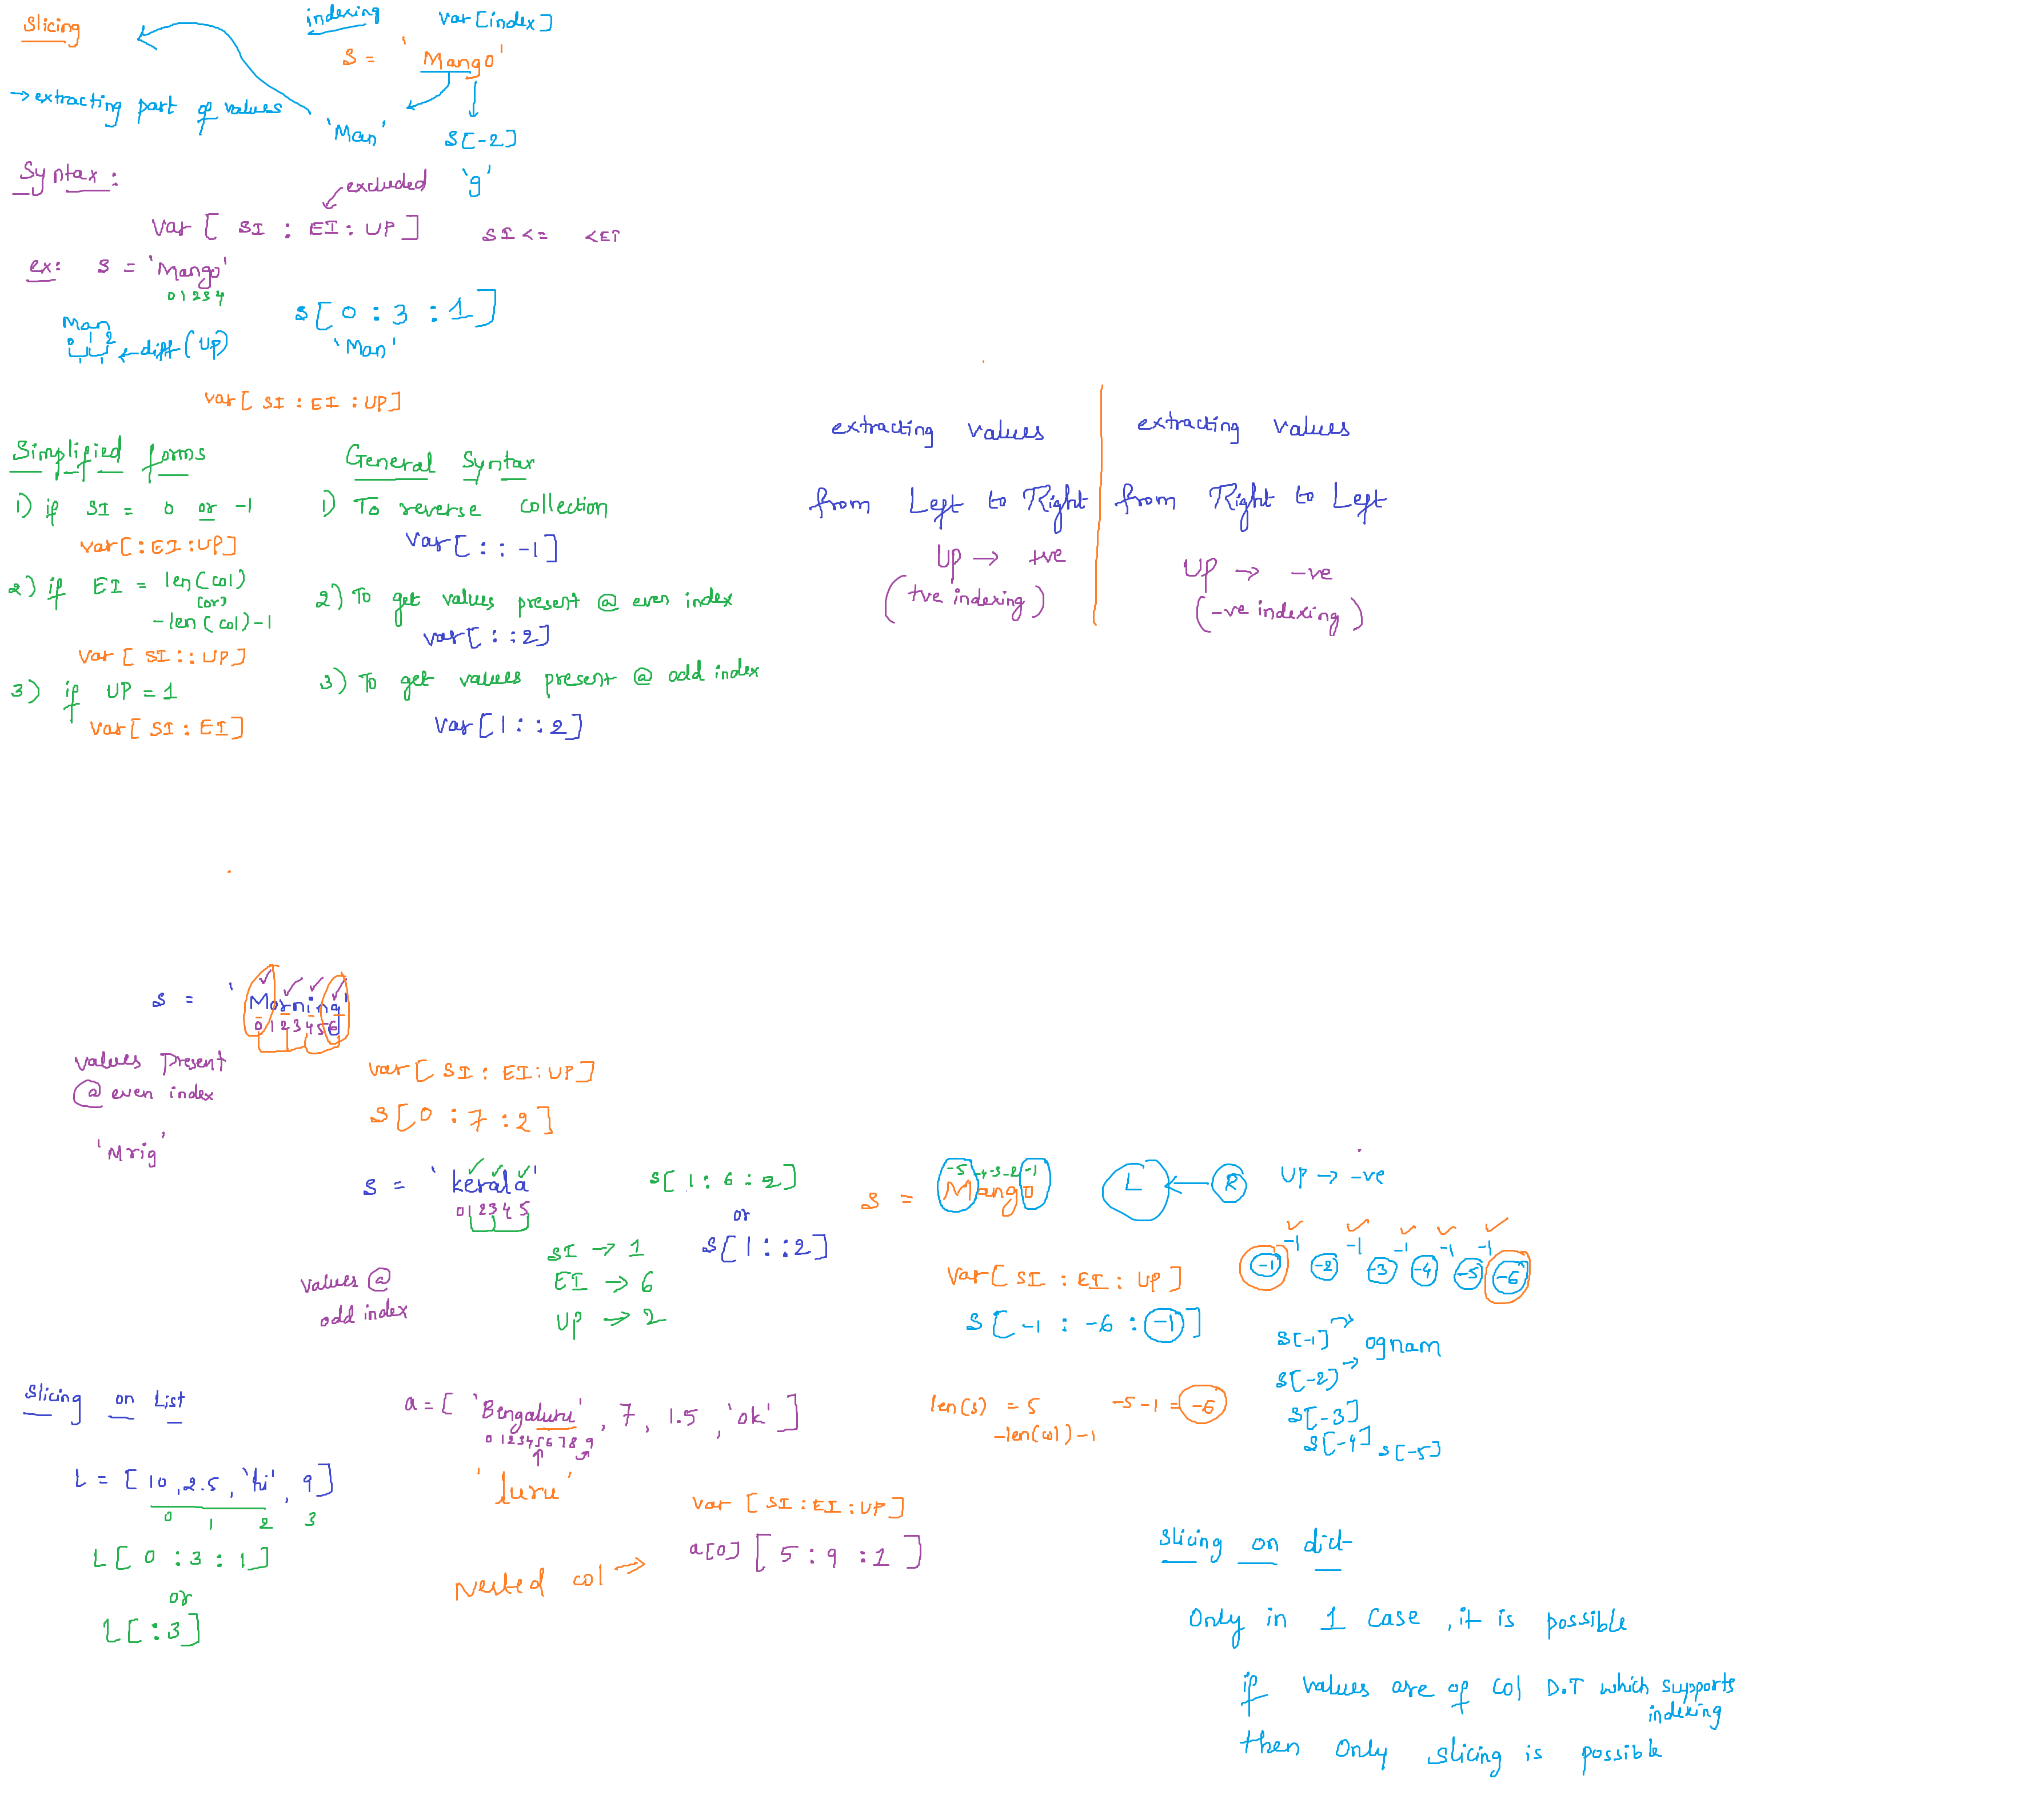 Slicing
indexing var[index]
s = 'Mango'
→ extracting part of values
'Man' s[-2]
'g'
Syntax:
excluded
var[ SI : EI : UP ] SI <= <EI
ex: s = 'Mango'
0 1 2 3 4
s[ 0 : 3 : 1 ]
'Man'
Man
0 1 2
← diff (UP)
var[ SI : EI : UP ]
Simplified forms
1) if SI = 0 or -1
var[ : EI : UP ]
2) if EI = len(col)
(or)
-len(col)-1
var[ SI : : UP ]
3) if UP = 1
var[ SI : EI ]
General Syntax
1) To reverse collection
var[ : : -1 ]
2) To get values present @ even index
var[ : : 2 ]
3) To get values present @ odd index
var[ 1 : : 2 ]
extracting values
from Left to Right
UP → +ve
(+ve indexing)
extracting values
from Right to Left
UP → -ve
(-ve indexing)
s = 'Morning'
0 1 2 3 4 5 6
values Present
@ even index
'Mrig'
var[ SI : EI : UP ]
s[ 0 : 7 : 2 ]
s = 'kerala'
0 1 2 3 4 5
s[ 1 : 6 : 2 ]
or
s[ 1 : : 2 ]
SI → 1
EI → 6
UP → 2
values @
odd index
-5 -4 -3 -2 -1
s = Mango
L ← R UP → -ve
-1 -1 -1 -1 -1
-1 -2 -3 -4 -5 -6
var[ SI : EI : UP ]
s[ -1 : -6 : -1 ]
s[-1] → ognam
s[-2] →
s[-3]
s[-4] s[-5]
len(s) = 5 -5-1 = -6
-len(col)-1
Slicing on List
L = [ 10, 2.5, 'hi', 9 ]
0 1 2 3
L[ 0 : 3 : 1 ]
or
L[ : 3 ]
a = [ 'Bengaluru', 7, 1.5, 'ok' ]
0 1 2 3 4 5 6 7 8 9
'luru'
var [ SI : EI : UP ]
Nested col → a[0] [ 5 : 9 : 1 ]
Slicing on dict
Only in 1 Case, it is possible
if values are of col D.T which supports
indexing
then Only slicing is possible